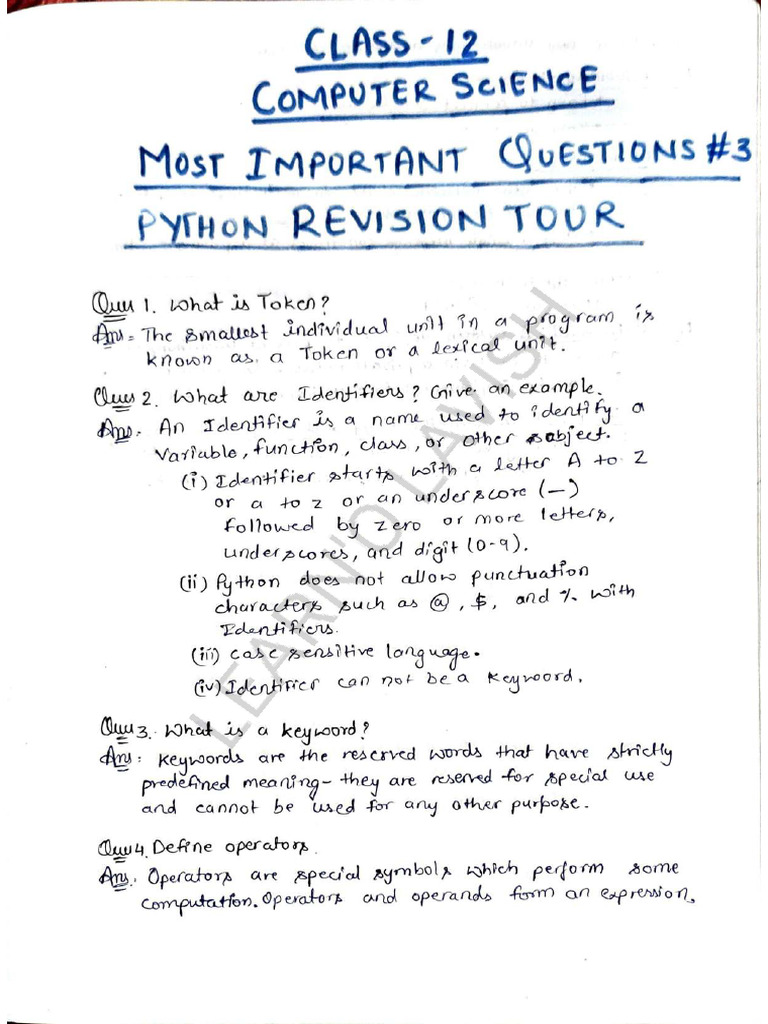 CLASS-12
COMPUTER SCIENCE
MOST IMPORTANT QUESTIONS #3
PYTHON REVISION TOUR
Ques 1. What is Token?
Ans = The smallest individual unit in a program is
known as a Token or a lexical unit.
Ques 2. What are Identifiers? Give an example.
Ans. An Identifier is a name used to identify a
Variable, function, class, or other object.
(i) Identifier starts with a letter A to Z
or a to z or an underscore (—)
followed by zero or more letters,
underscores, and digit (0-9).
(ii) Python does not allow punctuation
characters such as @, $, and % with
Identifiers.
(iii) case sensitive language.
(iv) Identifier can not be a keyword.
Ques 3. What is a keyword?
Ans: Keywords are the reserved words that have strictly
predefined meaning- they are reserved for special use
and cannot be used for any other purpose.
Ques 4. Define operators.
Ans. Operators are special symbols which perform some
computation. Operators and operands form an expression.
LEARN'D LAVISH